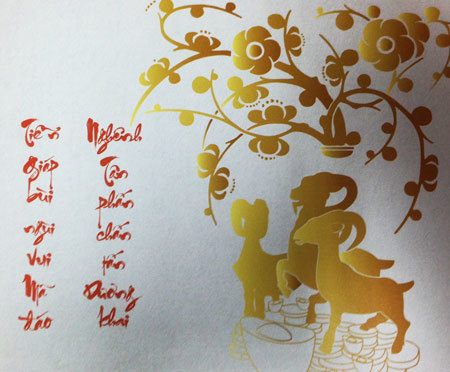 Tiễn Giáp bùi ngùi vui Mã đáo
Nghênh Tân phấn chấn Dương khai